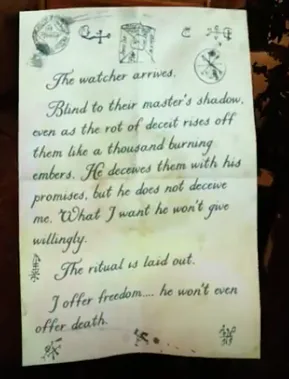 The watcher arrives.
Blind to their master's shadow,
even as the rot of deceit rises off
them like a thousand burning
embers. He deceives them with his
promises, but he does not deceive
me. What I want he won't give
willingly.
The ritual is laid out.
I offer freedom.... he won't even
offer death.